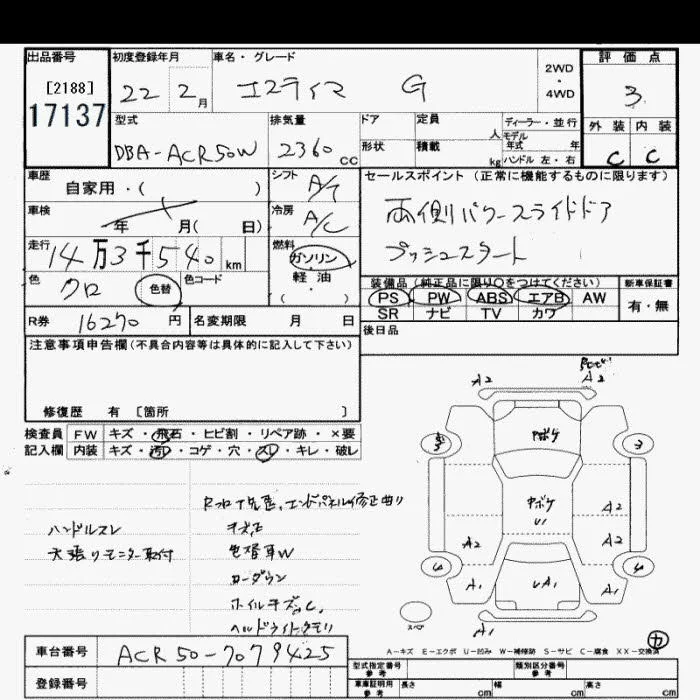 出品番号
[2188]
17137
初度登録年月
22 2月
車名・グレード
エスティマ G
2WD
・
4WD
評価点
3
型式
DBA-ACR50W
排気量
2360 cc
ドア
定員
人
形状
積載
kg
ディーラー・並行
モデル
年式 年
ハンドル 左・右
外装 内装
C C
車歴
自家用・( )
シフト
A/T
車検
年 月( 日)
冷房
A/C
走行
14万3千540 km
燃料
ガソリン
軽・油
( )
色
クロ
色替
色コード
セールスポイント(正常に機能するものに限ります)
両側パワースライドドア
プッシュスタート
装備品(純正品に限り〇をつけてください)
新車保証書
PS PW ABS エアB AW
有・無
SR ナビ TV カワ
後日品
R券 16270円
名変期限 月 日
注意事項申告欄(不具合内容等は具体的に記入して下さい)
修復歴 有 [箇所 ]
検査員 FW キズ・飛石・ヒビ割・リペア跡・×要
記入欄 内装 キズ・汚・コゲ・穴・スレ・キレ・破レ
ハンドルスレ
天張りモニター取付
エンドパネル修正曲り
色替車W
ローダウン
ホイルキズ
ヘッドライトクモリ
A2
A2
中ボケ
3
3
中ボケ
U1
A2
A2
A2
A1
UA1
A1
A1
スペア
カ
A-キズ E-エクボ U-凹み W-補修跡 S-サビ C-腐食 XX-交換済
車台番号
ACR50-7079425
登録番号
型式指定番号
参考
類別区分番号
参考
車庫証明用
参考
長さ cm
幅 cm
高さ cm